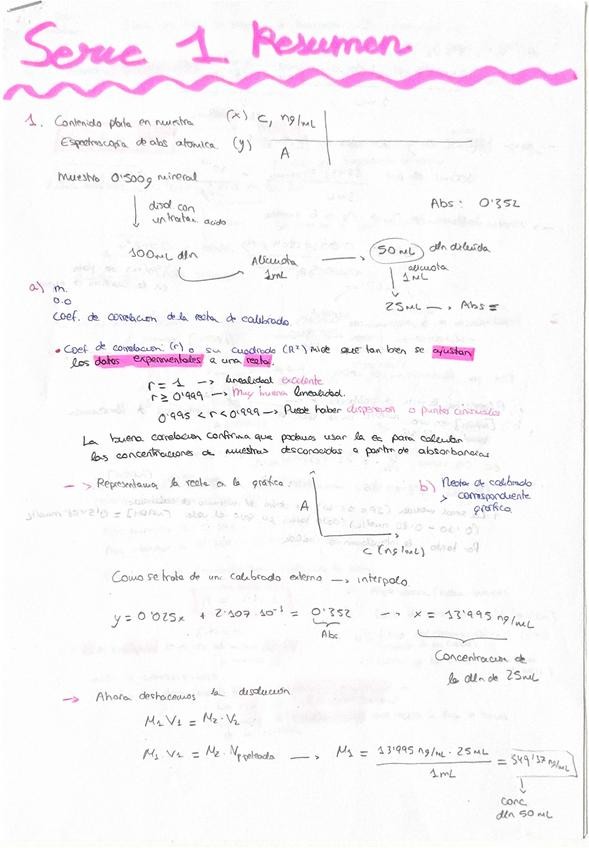 Serie 1 Resumen
1. Contenido plata en muestra (x) c, ng/mL
Espectroscopía de abs atomica (y) A
Muestra 0'500g mineral
Abs: 0'352
disol con
un tratam. acido
100mL dln Alicuota 1mL 50 mL dln diluida
alicuota
1mL
25mL → Abs =
a) m.
o.o
Coef. de correlacion de la recta de calibrado.
• Coef de correlacion (r) o su cuadrado (R²) mide que tan bien se ajustan
los datos experimentales a una recta.
r = 1 → linealidad excelente
r ≥ 0'999 → Muy buena linealidad.
0'995 < r < 0'999 → Puede haber dispersion o puntos anomalos
La buena correlacion confirma que podamos usar la ec para calcular
las concentraciones de muestras desconocidas a partir de absorbancias
→ Representamos la recta a la gráfica A c (ng/mL)
b) Rectas de calibrado
> correspondiente
gráfica
Como se trata de un calibrado externo → interpolo
y = 0'025x + 2'107·10⁻³ = 0'352 → x = 13'995 ng/mL
Abs
Concentracion de
la dln de 25mL
→ Ahora deshacemos la disolución
M₁V₁ = M₂·V₂
M₁V₁ = M₂·Vpipeteada → M₁ = 13'995 ng/mL · 25mL / 1mL = 349'37 ng/mL
conc
dln 50 mL